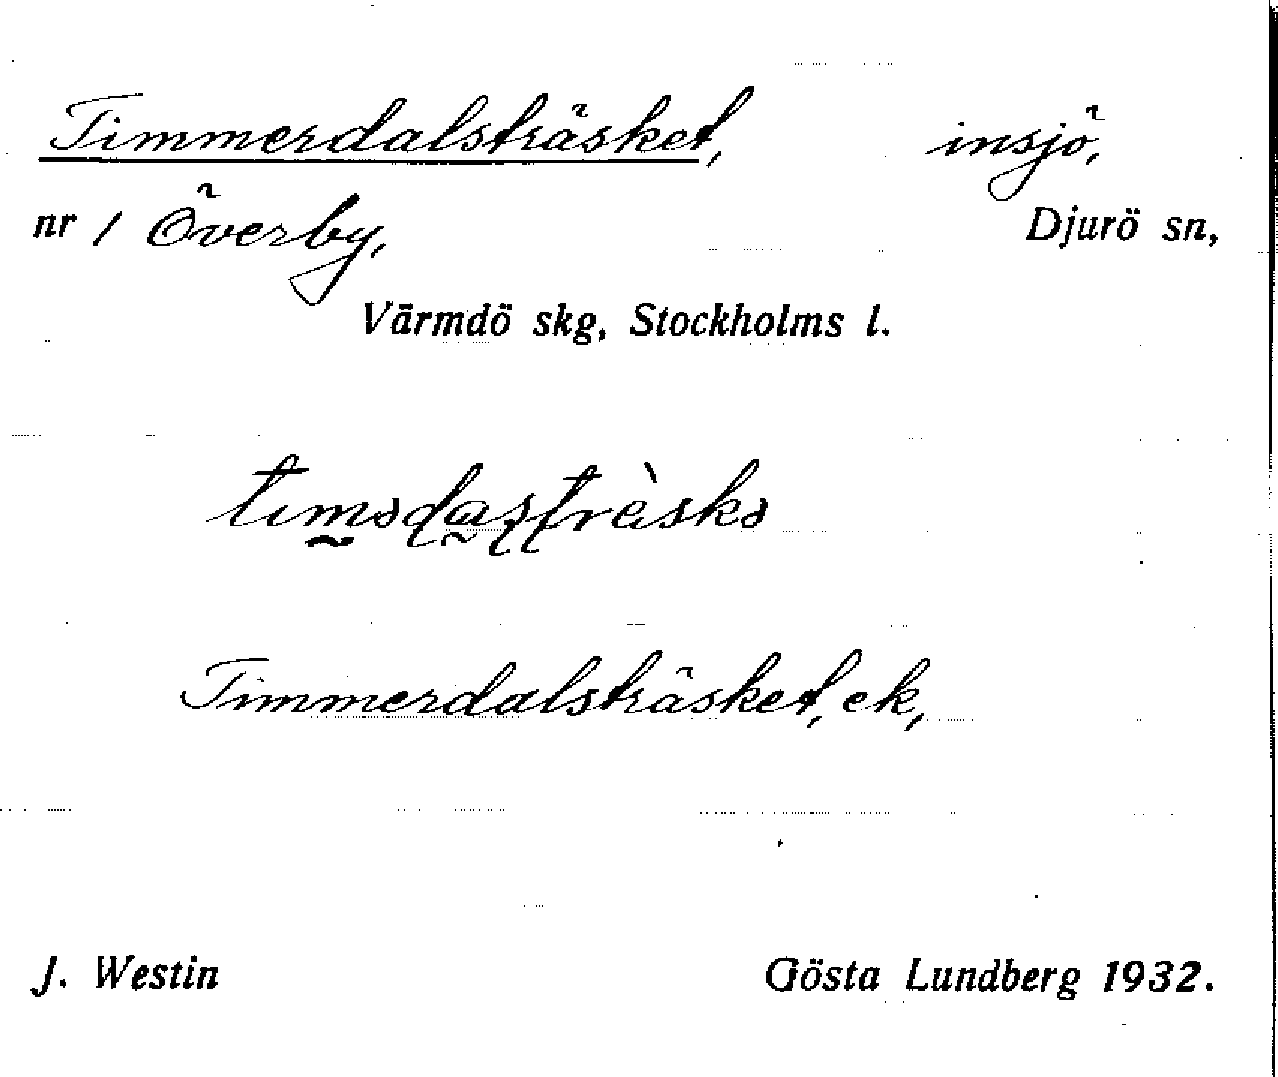 Timmerdalsträsket, insjö,
nr 1 Överby, Djurö sn,
Värmdö skg, Stockholms l.
Timmerdalsträsket, ek,
J. Westin Gösta Lundberg 1932.